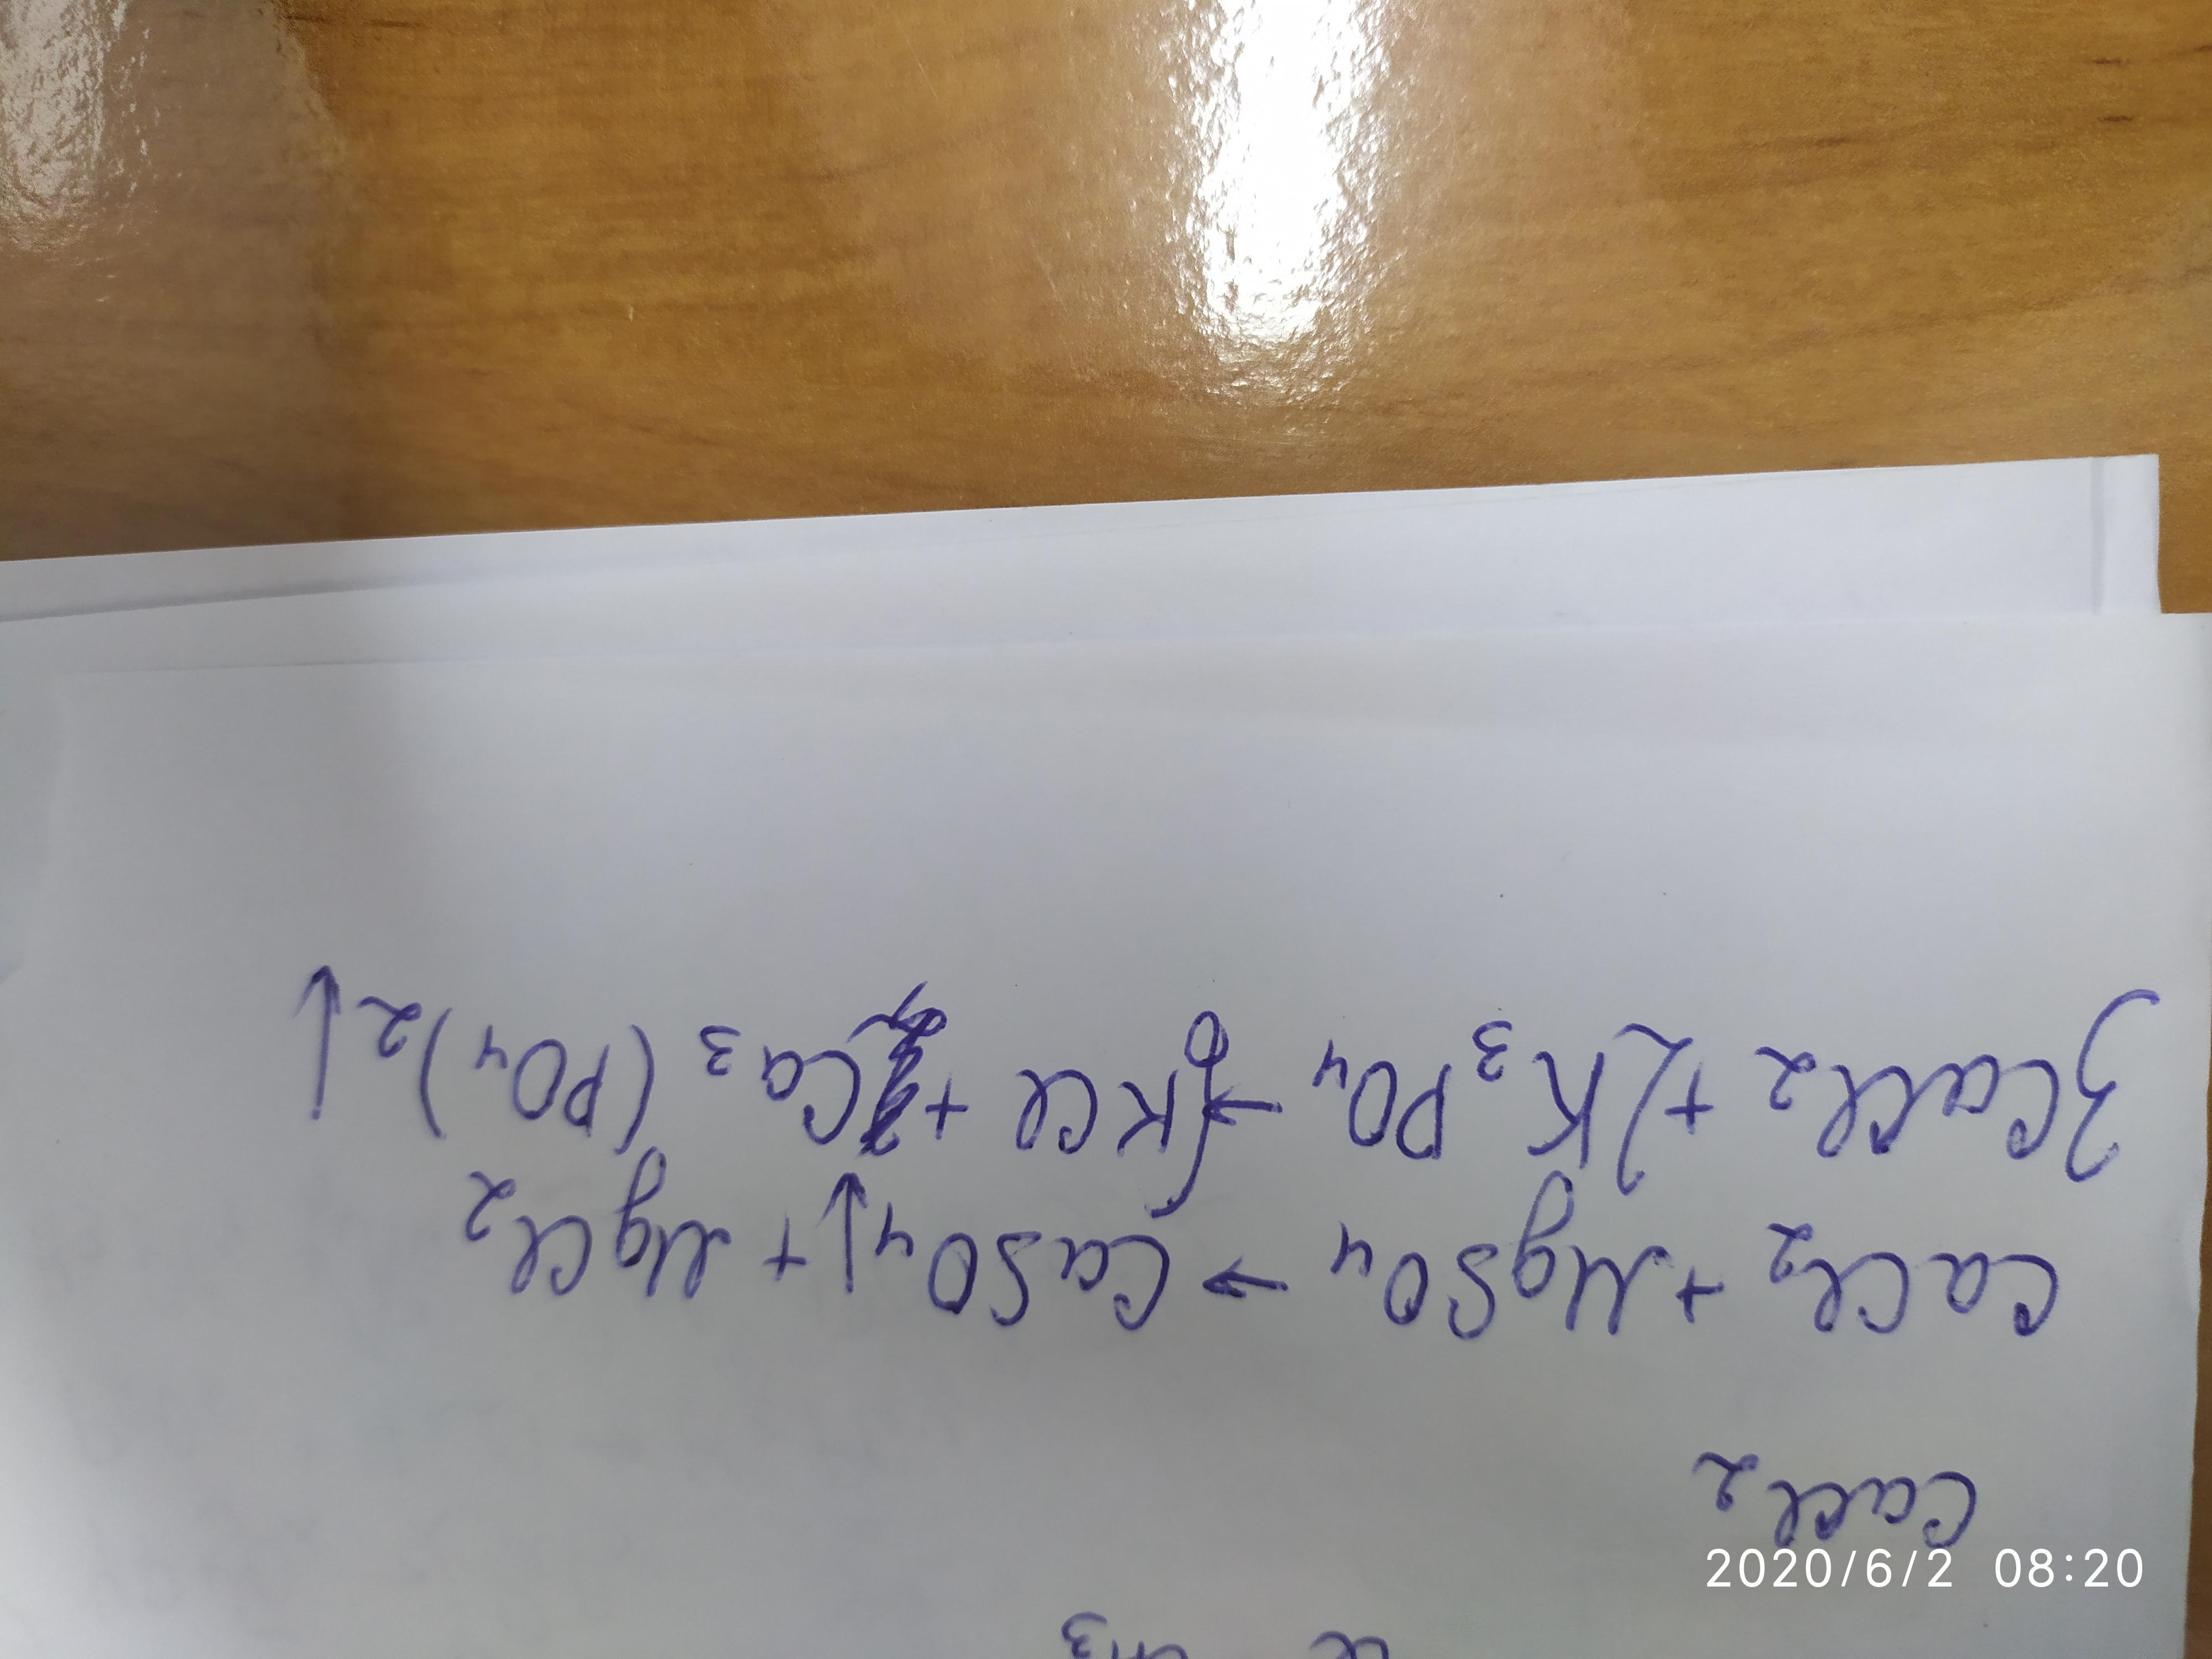 CaCl₂
CaCl₂ + MgSO₄ → CaSO₄↓ + MgCl₂
3CaCl₂ + 2K₃PO₄ → 6KCl + Ca₃(PO₄)₂↓
2020/6/2 08:20